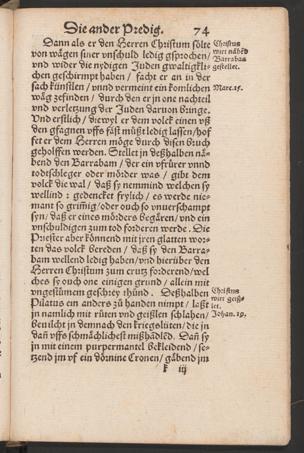 Die ander Predig. 74
Dann als er den Herren Christum sölte
von wägen siner vnschuld ledig gsprochen/
vnd wider die nydigen Juden gwaltigkli-
chen geschirmpt haben / facht er an in der
sach künstlen / vnnd vermeint ein komlichen
wäg zefinden / durch den er jn one nachteil
vnd verletzung der Juden daruon bringe.
Vnd erstlich / diewyl er dem volck einen vß
den gfagnen vffs fäst müßt ledig lassen/hof
fet er dem Herren möge durch disen bruch
geholffen werden. Stellet jn deßhalben nä-
bend den Barrabam / der ein vfrürer vnnd
todschleger oder mörder was / gibt dem
volck die wal / daß sy nemmind welchen sy
wellind : gedencket frylich / es werde nie-
mant so grimmig/oder ouch so vnuerschampt
syn/ daß er eines mörders begären/ vnd ein
vnschuldigen zum tod forderen werde. Die
Priester aber könnend mit jren glatten wor-
ten das volck bereden / daß sy den Barra-
bam wellend ledig haben/vnd hierüber den
Herren Christum zum crütz forderend/wel
ches sy ouch one einigen grund / allein mit
vngestümem geschrey thünd. Deßhalben
Pilatus ein anders zů handen nimpt / laßt
jn namlich mit růten vnd geißlen schlahen/
Beuilcht jn demnach den kriegslüten/die jn
dañ vffs schmächlichest mißhädlēd. Dañ sy
jn mit einem purpermantel bekleidend / se-
tzend jm vf ein dörnine Cronen/ gäbend jm
k iij
Christus
wirt näbēd
Barrabas
gestellet.
Marc.15.
Christus
wirt geiß-
let.
Johan. 19.